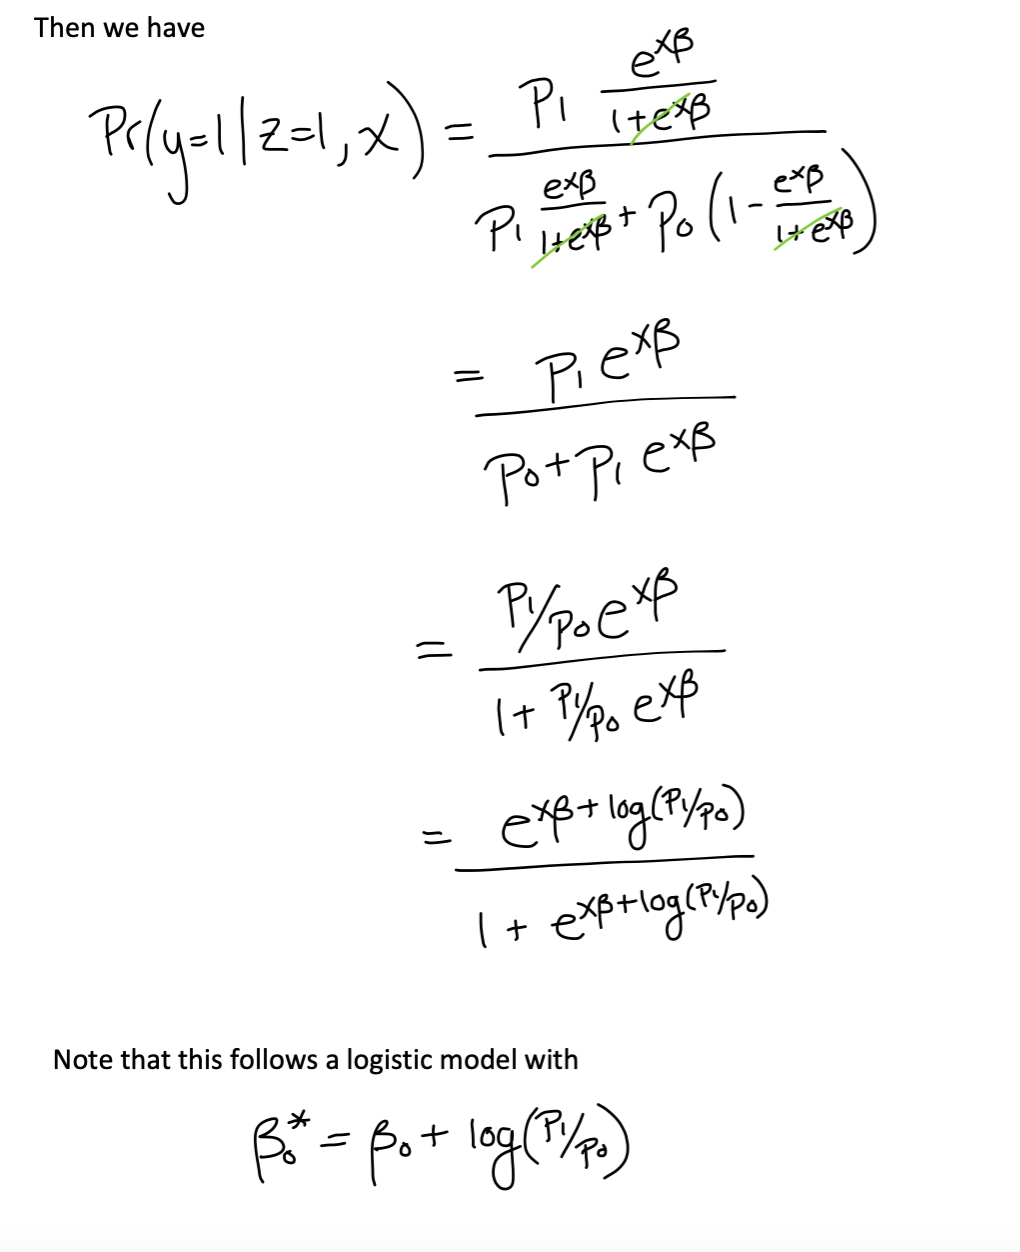 Then we have
Pr(y=1|z=1,x) = (P₁ e^{xβ}/(1+e^{xβ})) / (P₁ e^{xβ}/(1+e^{xβ}) + P₀(1 - e^{xβ}/(1+e^{xβ})))
= P₁e^{xβ} / (P₀+P₁e^{xβ})
= (P₁/P₀ e^{xβ}) / (1+P₁/P₀ e^{xβ})
= e^{xβ+log(P₁/P₀)} / (1+e^{xβ+log(P₁/P₀)})
Note that this follows a logistic model with
β₀* = β₀ + log(P₁/P₀)